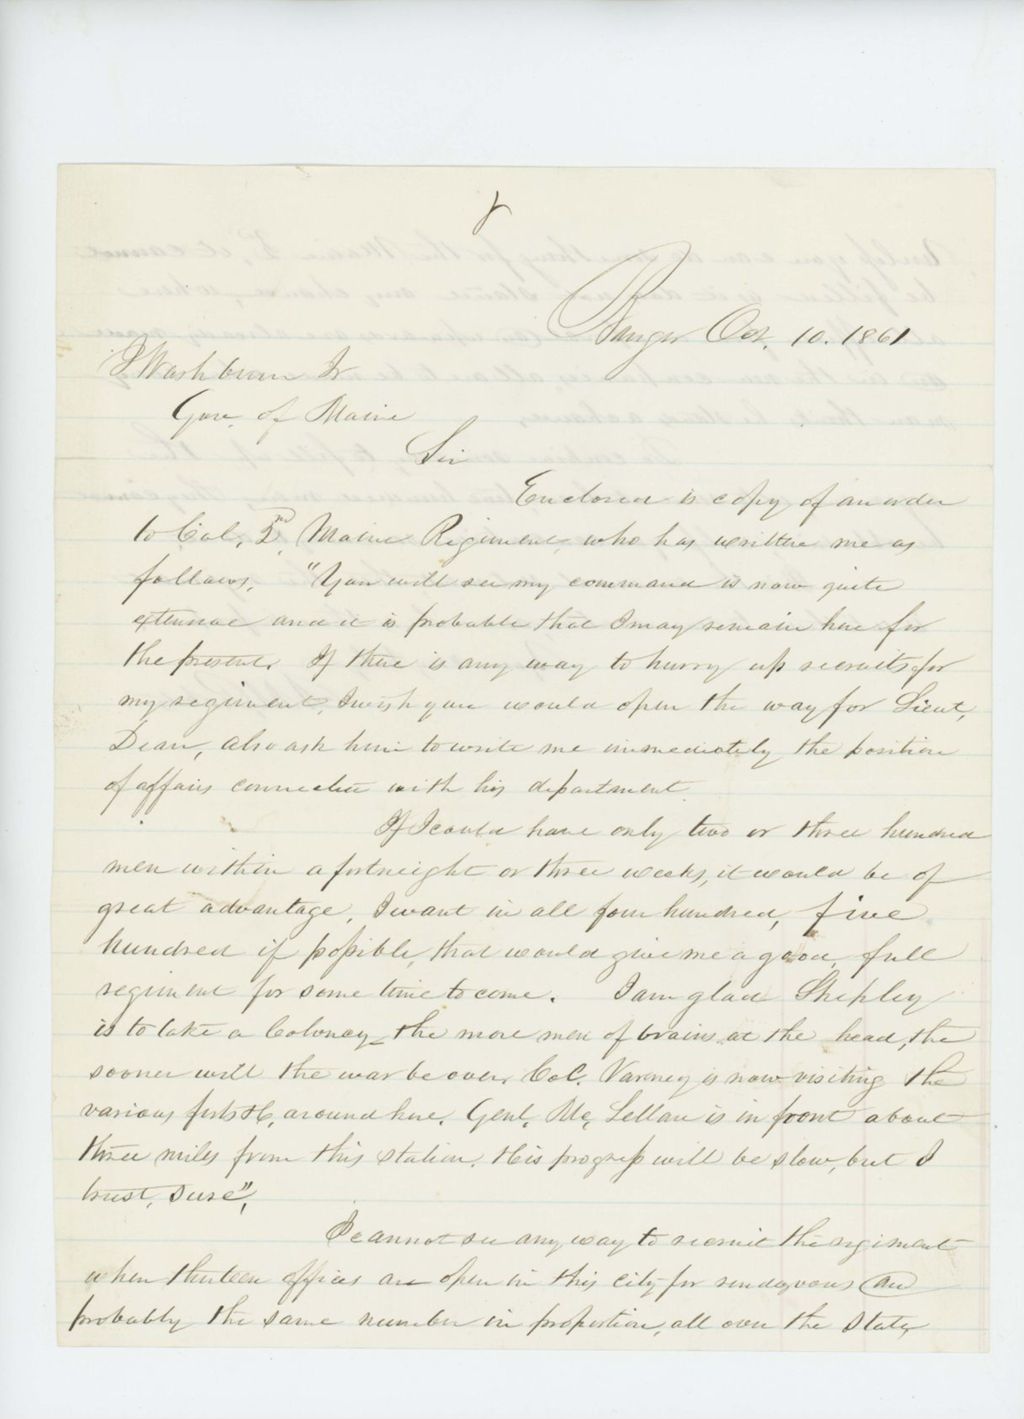 Bangor Oct. 10. 1861
I Washburn Jr
Gov. of Maine
Sir
Enclosed is copy of an order
to Col. 2nd Maine Regiment, who has written me as
follows. "You will see my command is now quite
extensive and it is probable that I may remain here for
the present. If there is any way to hurry up recruits for
my regiment, I wish you would open the way for Lieut.
Dean, also ask him to write me immediately the position
of affairs connected with his department.
If I could have only two or three hundred
men within a fortneight or three weeks, it would be of
great advantage, I want in all four hundred, five
hundred if possible, that would give me a good, full
regiment for some time to come. I am glad Shepley
is to take a Colonecy - the more men of brains at the head, the
sooner will the war be over. Col. Varney is now visiting the
various forts &c, around here. Genl. Mc Lellan is in front about
three miles from this station. His progress will be slow, but I
trust, sure".
I cannot see any way to recruit the regiment
when thirteen offices are open in this city for rendezvous and
probably the same number in proportion, all over the State,